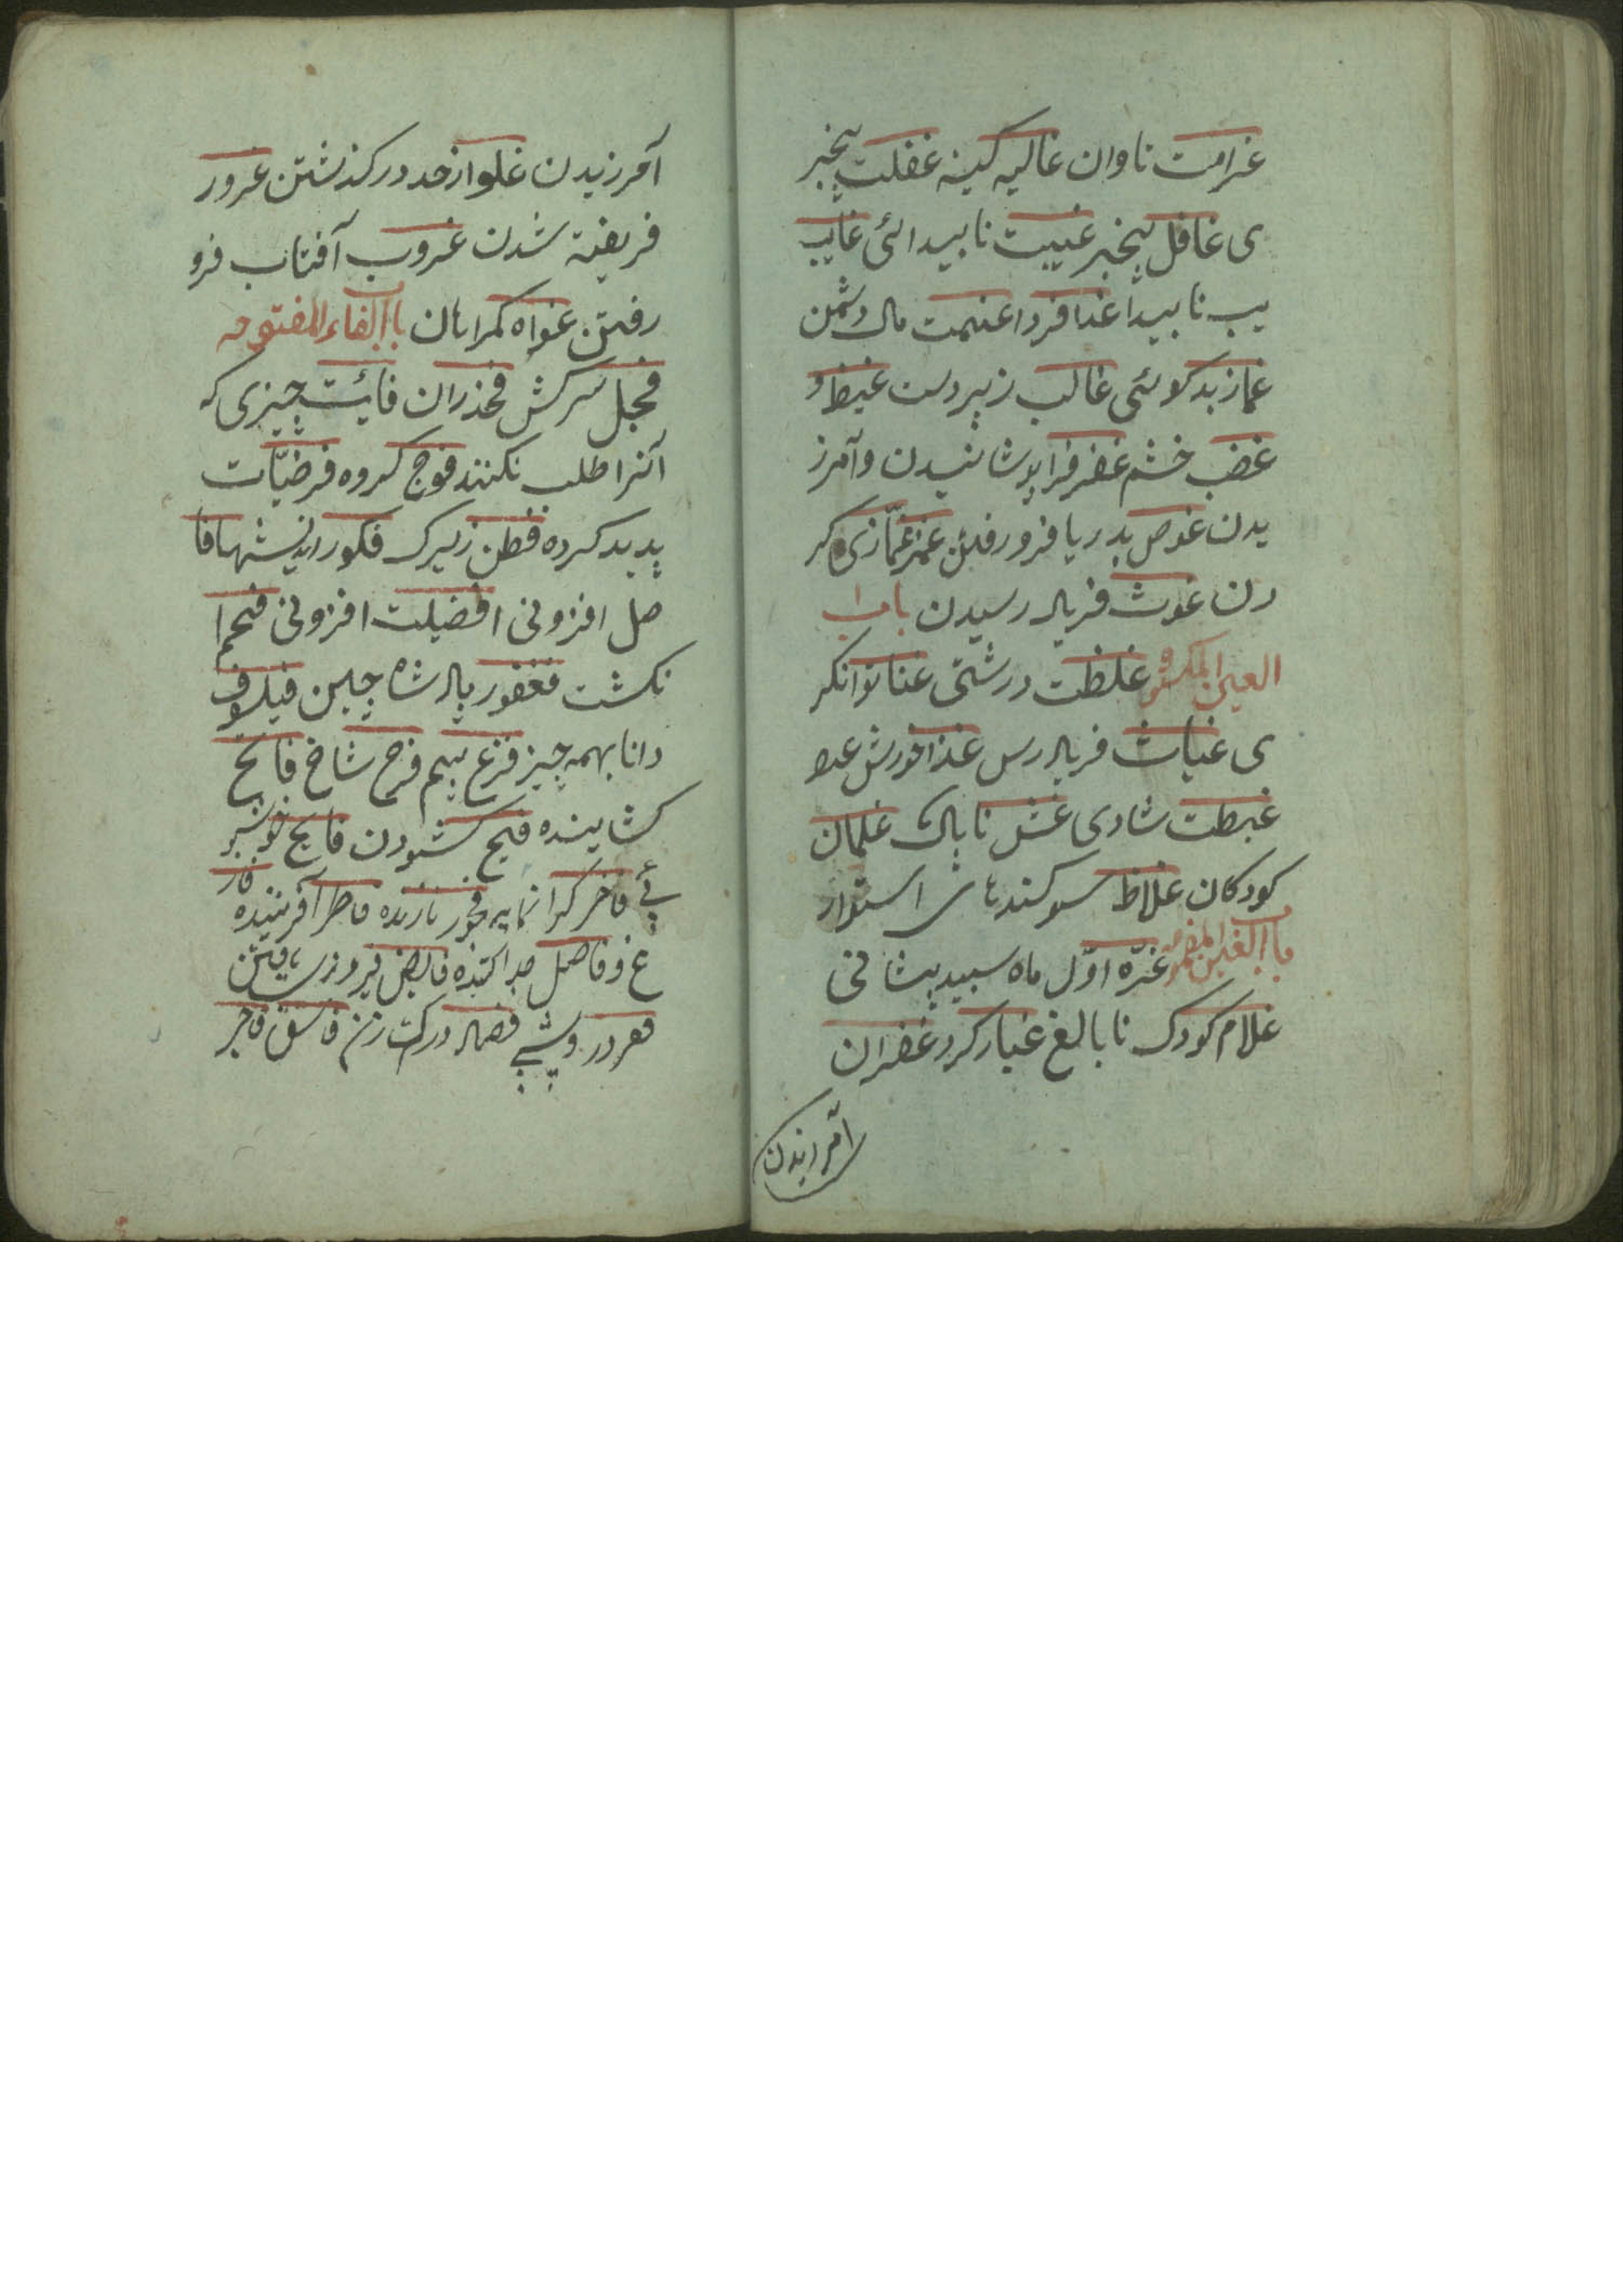 غرامت تاوان غالیه کینه غفلت بیخبر
ی غافل بیخبر غیبت ناپیدائی غایب
یب ناپیدا غدا فردا غنیمت مال دشمن
غماز بدکوئی غالب زبردست غیظ و
غضب خشم غفر فراپوشانیدن وآمرز
یدن غوص بدریا فرو رفتن غمز غمّازی کر
دن غوث فریاد رسیدن باب
الغین المکسو غلظت درشتی غنا توانکر
ی غیاث فریادرس غذا خورش
غبطت شادی غش ناپاک غلمان
کودکان غلاظ سوکندهای استوار
باب الغین المضمو غرّه اوّل ماه سپید پیشانی
غلام کودک نابالغ غبار کرد غفران
آمرزیدن
آمرزیدن غلو از حد درکذشتن غرور
فریفته شدن غروب آفتاب فرو
رفتن غواه کمراهان باب الفاء المفتوحه
فحل سرکش فخذ ران فائت چیزی که
آنرا طلب نکنند فوج کروه فرضیّات
پدید کرده فطن زیرک فکور اندیشها فا
ضل افزونی افضیلت افزونی فحم ا
نکشت فغفور پادشاه چین فیلسوف
دانا بهمه چیز فزع بیم فرح شاخ فاتح
کشاینده فتح کشودن فایح خوشبو
ئی فاخر کرانمایه فخور نازنده فاطر آفریننده فار
غ و فاصل جدا کننده فایض فیروزی یافتن
فقر درویشی فصاد رکت زن فاسق فاجر